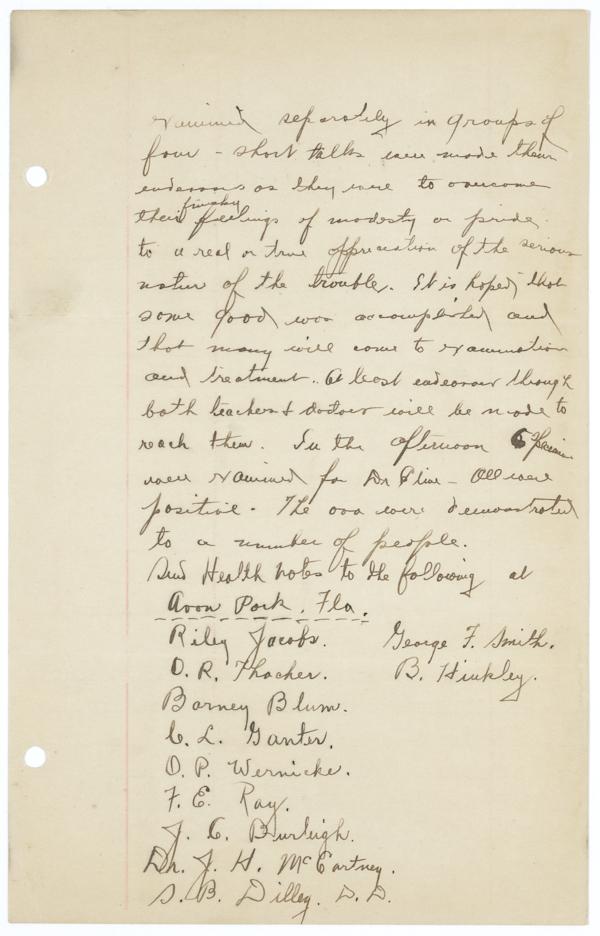 examined separately in groups of
four - short talks were made them
endeavors as they were to overcome
finicky
their feelings of modesty or pride
to a real or true appreciation of the serious
nature of the trouble. It is hoped that
some good was accomplished and
that many will come to examination
and treatment. At least endeavor through
both teachers & doctors will be made to
reach them. In the afternoon 6
were examined for Dr Cline - All were
positive. The ova were demonstrated
to a number of people.
Send Health Notes to the following at
Avon Park, Fla.
Riley Jacobs. George F. Smith.
O. R. Thacher. B. Hinkley.
Barney Blum.
C. L. Ganter.
O. P. Wernicke.
F. E. Ray.
J. C. Burleigh.
Dr. J. H. McCartney.
S. B. Dilley. D.D.